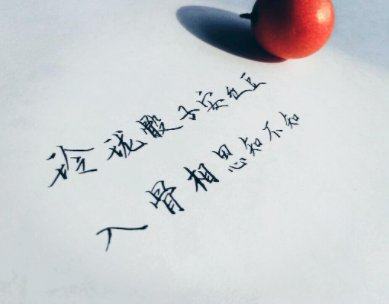 玲珑骰子安红豆
入骨相思知不知